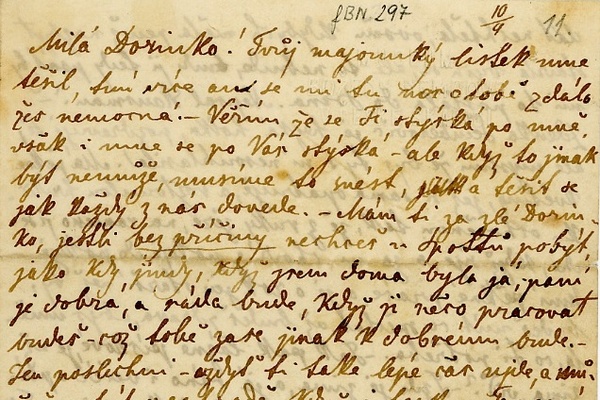 fBN 297 10/9 11.
Milá Dorinko! Tvůj majounký lístek mne
těšil, tím více an se mi tu noc o tobě zdálo
žes nemocná. – Věřím že se Ti stýská po mně,
však i mne se po Vás stýská – ale když to jinak
být nemůže, musíme to snést, a těšit se
jak každý z nás dovede. – Mám ti za zlé Dorin-
ko, jestli bez příčiny nechceš u Spottů pobýt,
jako kdy jindy, když jsem doma byla já; paní
je dobrá, a ráda bude, když jí něco pracovat
budeš – což tobě zase jinak k dobrému bude. –
Jen poslechni – ti také lépe čas ujde, a